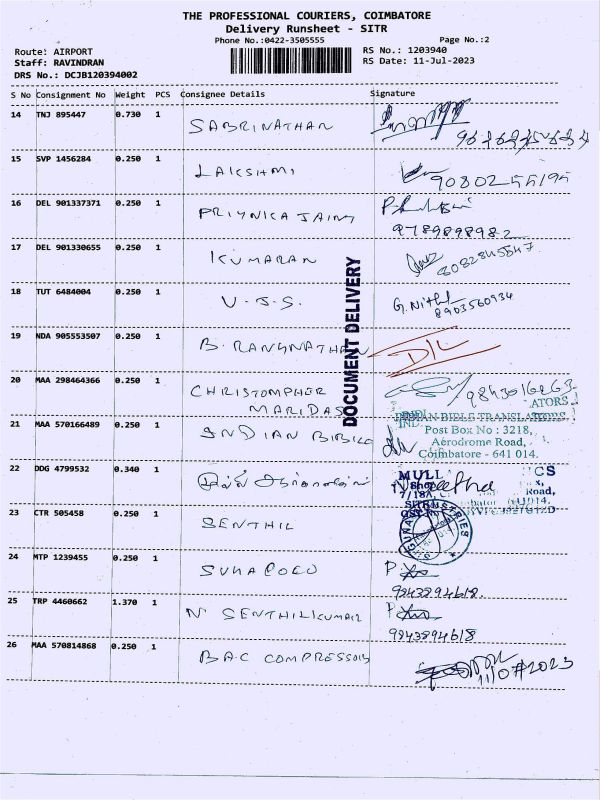 THE PROFESSIONAL COURIERS, COIMBATORE
Delivery Runsheet - SITR
Phone No.:0422-3505555 Page No.:2
Route: AIRPORT RS No.: 1203940
Staff: RAVINDRAN RS Date: 11-Jul-2023
DRS No.: DCJB120394002
S No Consignment No Weight PCS Consignee Details Signature
14 TNJ 895447 0.730 1 SABRINATHAN
15 SVP 1456284 0.250 1 LAKSHMI 9080255195
16 DEL 901337371 0.250 1 PRIYNICA JAIN
9789898982
17 DEL 901330655 0.250 1 KUMARAN
18 TUT 6484004 0.250 1 V.J.S. G. Nithi
8903560934
19 NDA 905553507 0.250 1 B. RANGNATHAN D/L
20 MAA 298464366 0.250 1 CHRISTOMPHER
MARIDAS
DOCUMENT DELIVERY
21 MAA 570166489 0.250 1 INDIAN
INDIAN BIBLE TRANSLATORS
Post Box No : 3218,
Aerodrome Road,
Coimbatore - 641 014.
22 DDG 4799532 0.340 1
23 CTR 505458 0.250 1 SENTHIL
24 MTP 1239455 0.250 1 P.
9843894618.
25 TRP 4460662 1.370 1 N SENTHIL KUMAR P.
9843894618
26 MAA 570814868 0.250 1 BAC COMPRESSORS
11/07/2023